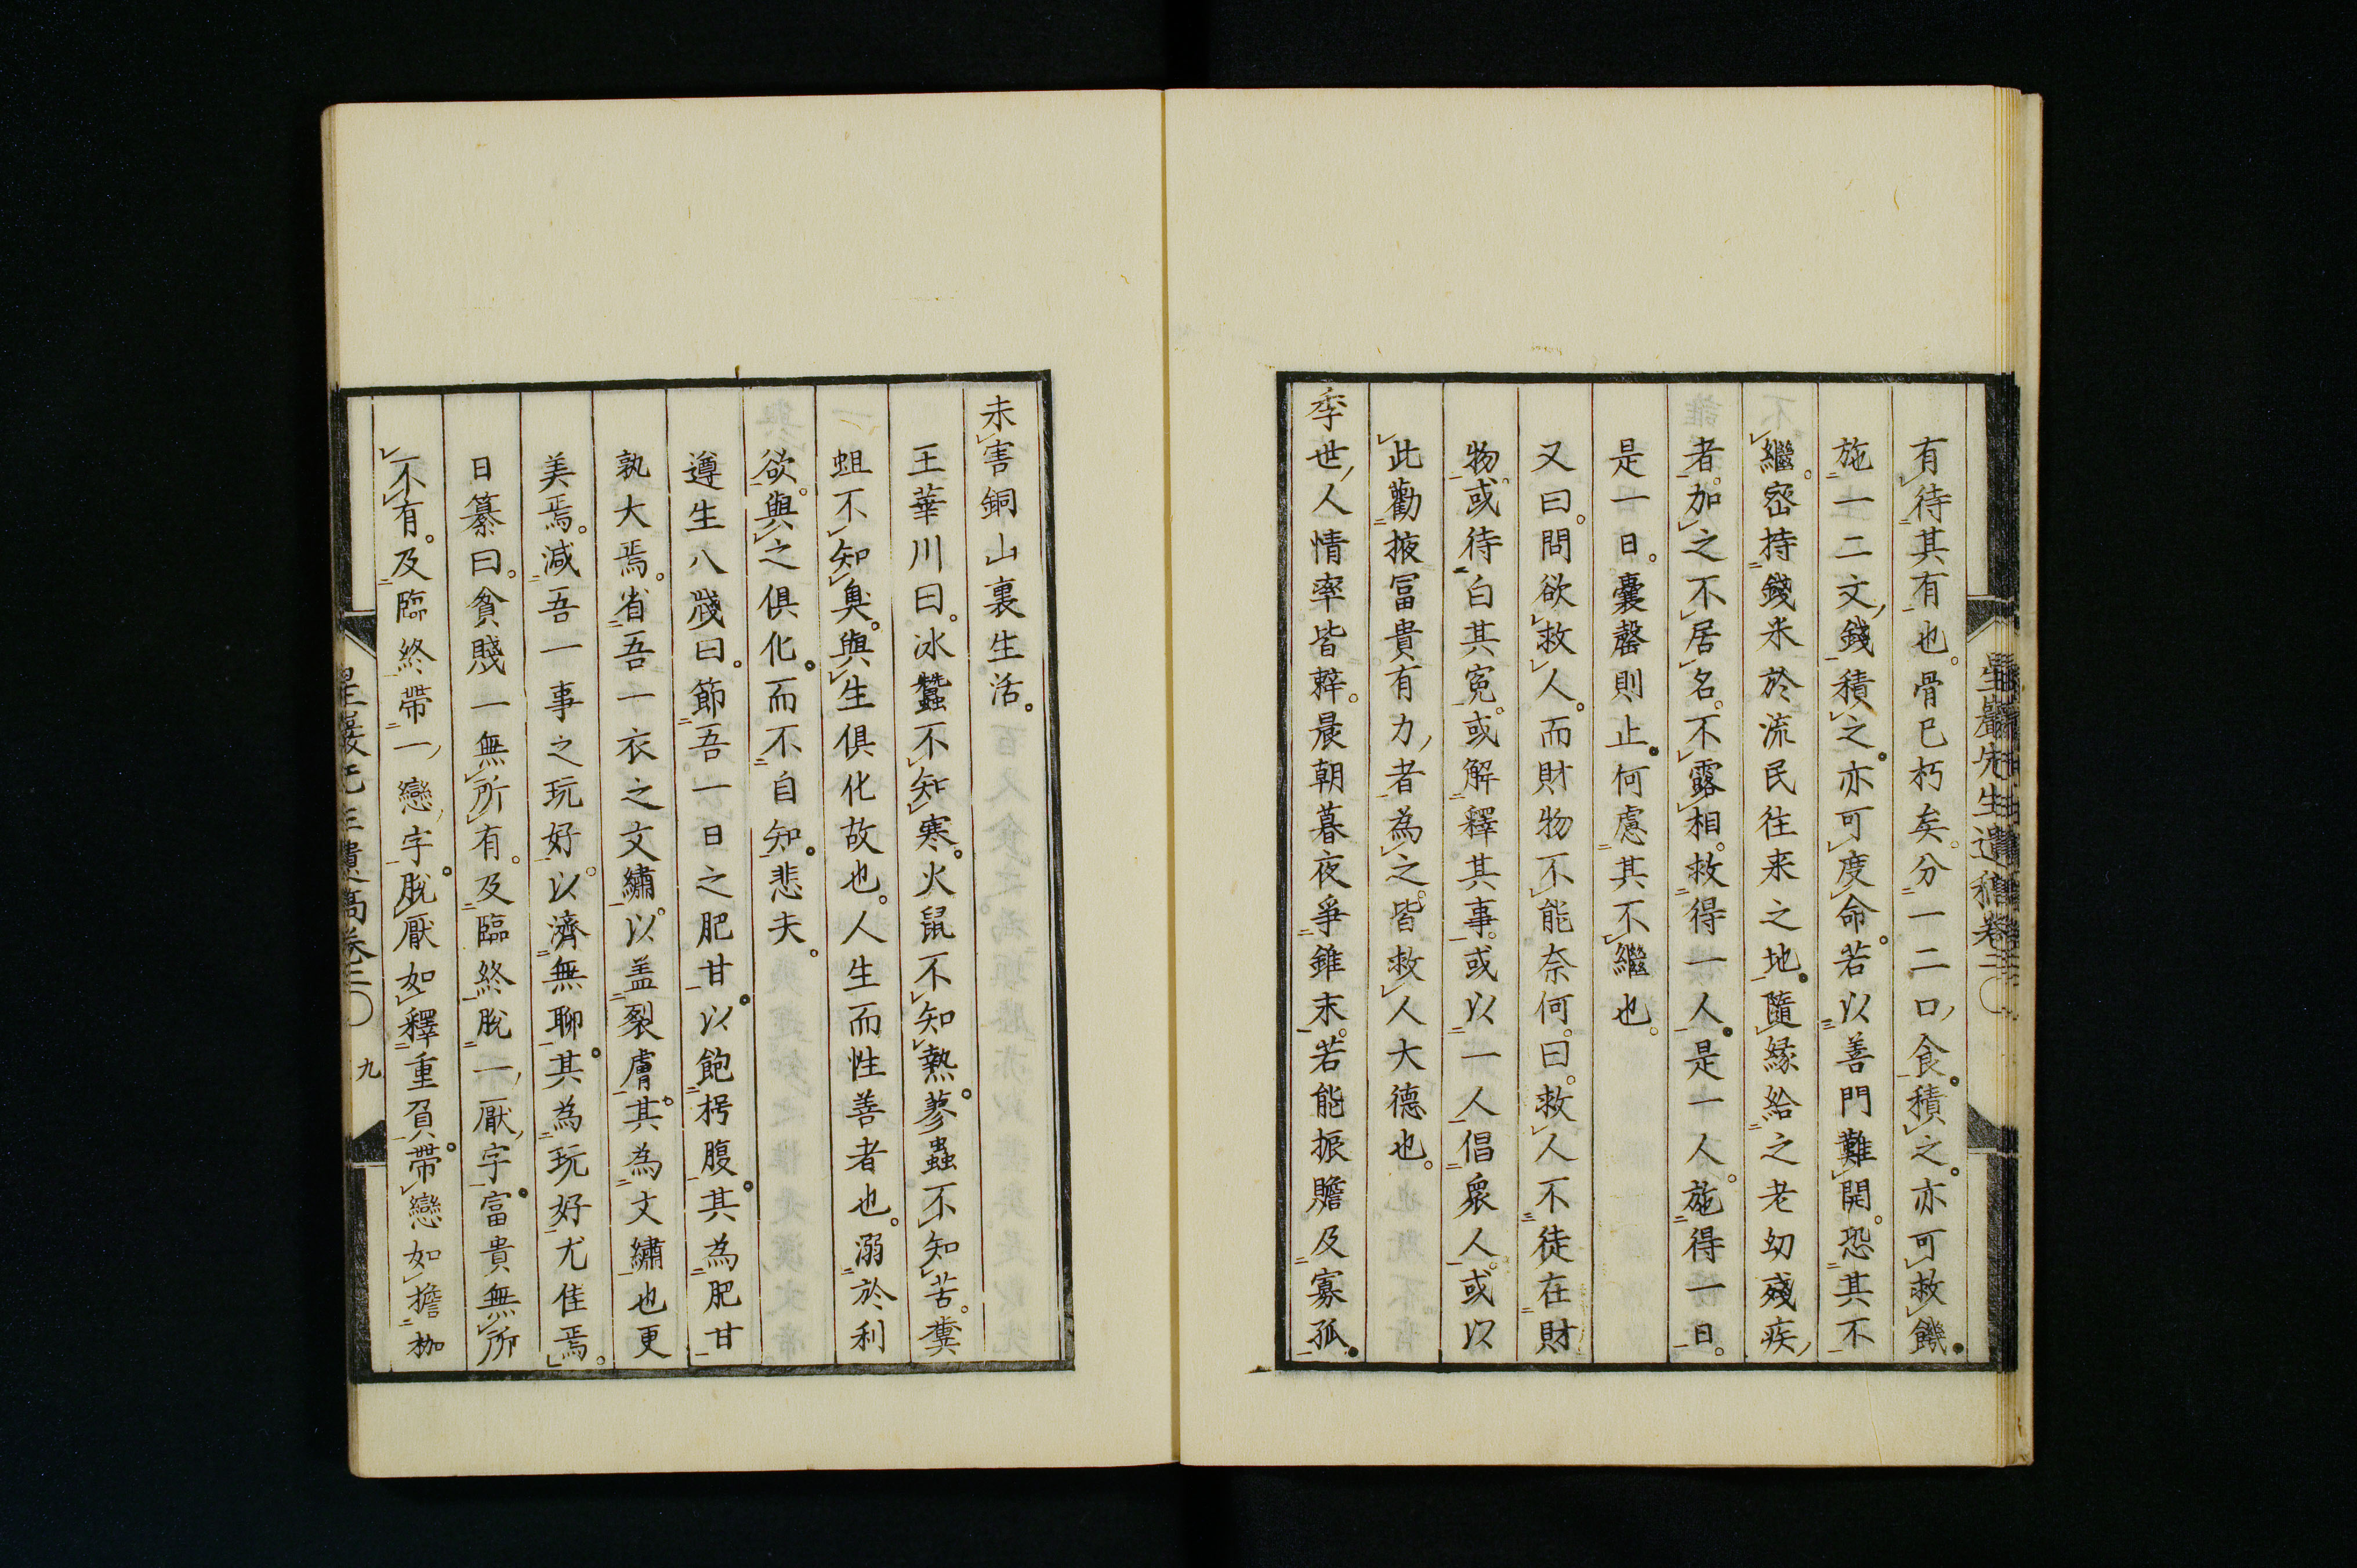 有待其有也。骨已朽矣。分一二口食。積之。亦可救饑。
施一二文錢積之。亦可度命。若以善門難開。恐其不
繼。密持錢米於流民往来之地。隨縁給之老幼殘疾
者。加之不居名。不露相。救得一人。是一人。施得一日。
是一日。囊罄則止。何慮其不繼也。
又曰。問欲救人。而財物不能奈何。曰。救人不徒在財
物。或待白其寃。或解釋其事。或以一人倡衆人。或以
此勸掖冨貴有力者為之。皆救人大德也。
季世人情率皆辢。晨朝暮夜爭錐末。若能振贍及寡孤。
未害銅山裏生活。
王華川曰。冰蠶不知寒。火鼠不知熱。蓼蟲不知苦。糞
蛆不知臭。與生俱化故也。人生而性善者也。溺於利
欲。與之俱化。而不自知。悲夫。
遵生八牋曰。節吾一日之肥甘。以飽枵腹。其為肥甘
孰大焉。省吾一衣之文繡。以盖裂膚。其為文繡也更
美焉。減吾一事之玩好。以濟無聊。其為玩好尤佳焉。
日纂曰。貧賤一無所有。及臨終脫一厭字。富貴無所
不有。及臨終帶一戀字。脫厭如釋重負。帶戀如擔枷
星巖先生遺稿卷三
九